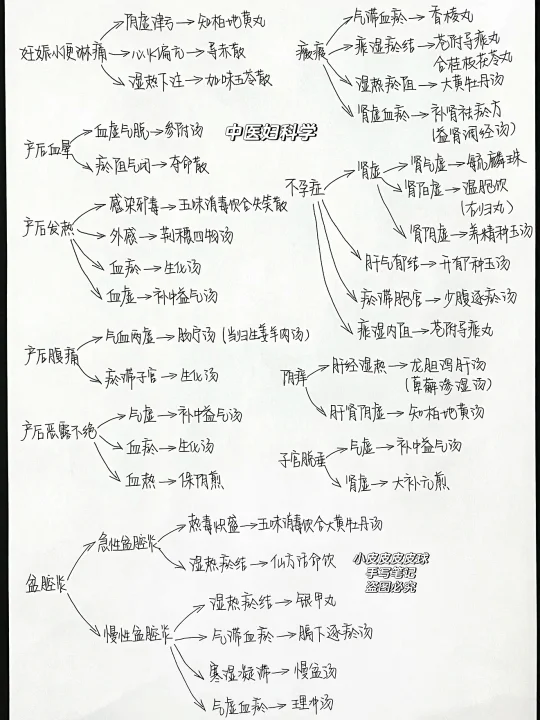 阴虚津亏→知柏地黄丸
妊娠小便淋痛→心火偏亢→导赤散
湿热下注→加味五苓散
产后血晕
血虚气脱→参附汤
瘀阻气闭→夺命散
中医妇科学
产后发热
感染邪毒→五味消毒饮合失笑散
外感→荆穗四物汤
血瘀→生化汤
血虚→补中益气汤
产后腹痛
气血两虚→肠宁汤(当归生姜羊肉汤)
瘀滞子宫→生化汤
产后恶露不绝
气虚→补中益气汤
血瘀→生化汤
血热→保阴煎
癥瘕
气滞血瘀→香棱丸
痰湿瘀结→苍附导痰丸
合桂枝茯苓丸
湿热瘀阻→大黄牡丹汤
肾虚血瘀→补肾祛瘀方
(益肾调经汤)
不孕症
肾虚
肾气虚→毓麟珠
肾阳虚→温胞饮
(右归丸)
肾阴虚→养精种玉汤
肝气郁结→开郁种玉汤
瘀滞胞宫→少腹逐瘀汤
痰湿内阻→苍附导痰丸
阴痒
肝经湿热→龙胆泻肝汤
(萆薢渗湿汤)
肝肾阴虚→知柏地黄汤
子宫脱垂
气虚→补中益气汤
肾虚→大补元煎
盆腔炎
急性盆腔炎
热毒炽盛→五味消毒饮合大黄牡丹汤
湿热瘀结→仙方活命饮
慢性盆腔炎
湿热瘀结→银甲丸
气滞血瘀→膈下逐瘀汤
寒湿凝滞→慢盆汤
气虚血瘀→理冲汤
小皮皮皮皮球
手写笔记
盗图必究